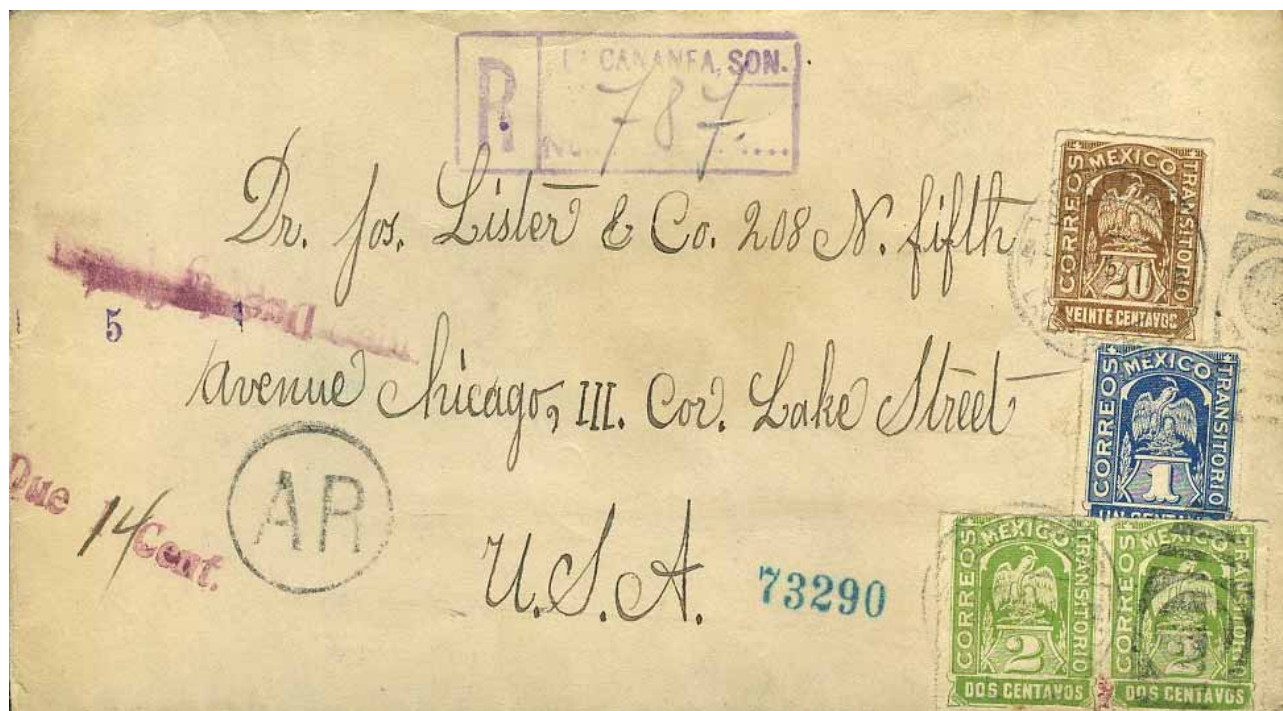 R
CANANEA, SON.
No. 787
Dr. Jos. Lister & Co. 208 N. fifth
avenue Chicago, Ill. Cor. Lake Street
U.S.A.
5 1
AR
Due 14 Cent.
73290
CORREOS MEXICO TRANSITORIO
20
VEINTE CENTAVOS
CORREOS MEXICO TRANSITORIO
1
UN CENTAVO
CORREOS MEXICO TRANSITORIO
2
DOS CENTAVOS
CORREOS MEXICO TRANSITORIO
2
DOS CENTAVOS